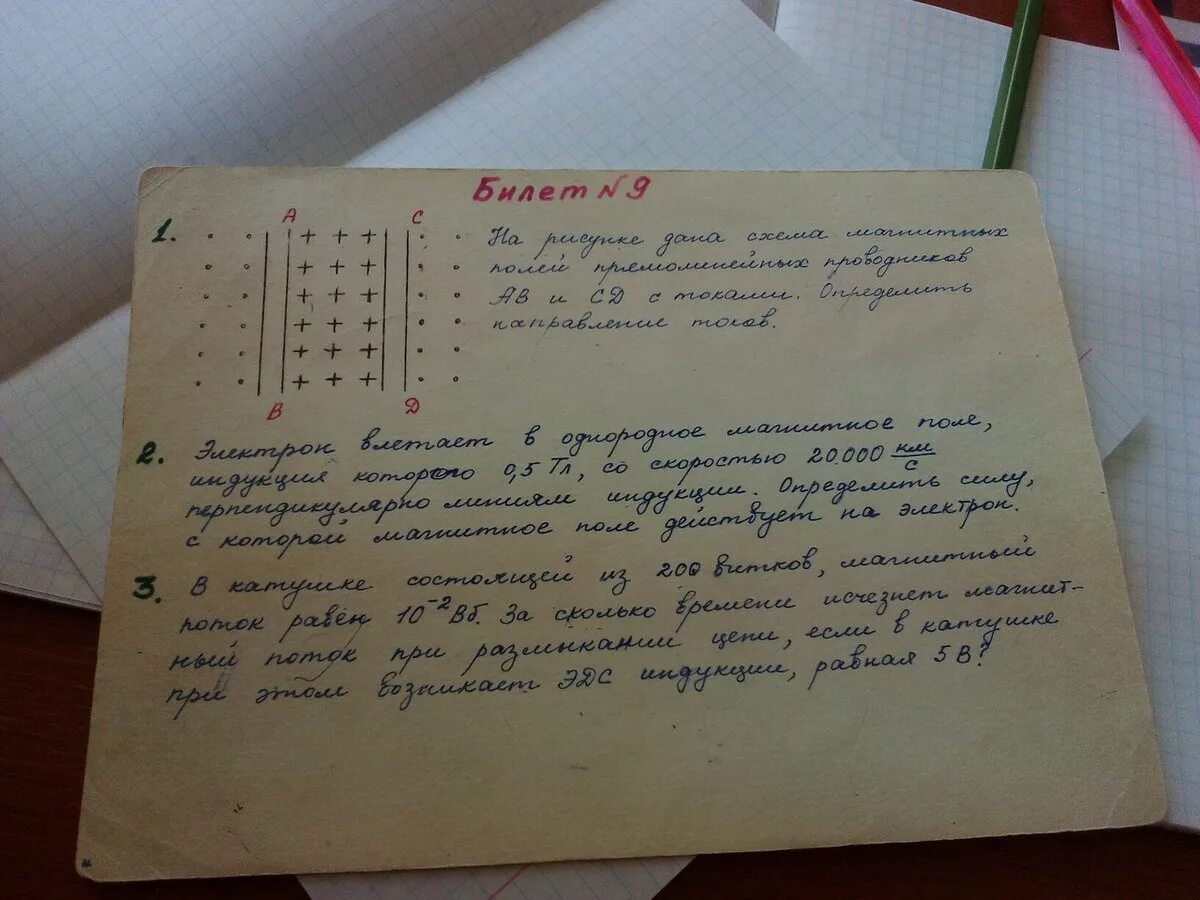 Билет №9
1.
A
C
B
D
На рисунке дана схема магнитных
полей прямолинейных проводников
АВ и СД с токами. Определить
направление токов.
2. Электрон влетает в однородное магнитное поле,
индукция которого 0,5 Тл, со скоростью 20.000 км/с
перпендикулярно линиям индукции. Определить силу,
с которой магнитное поле действует на электрон.
3. В катушке состоящей из 200 витков, магнитный
поток равен 10⁻² Вб. За сколько времени исчезнет магнит-
ный поток при размыкании цепи, если в катушке
при этом возникает ЭДС индукции, равная 5 В?